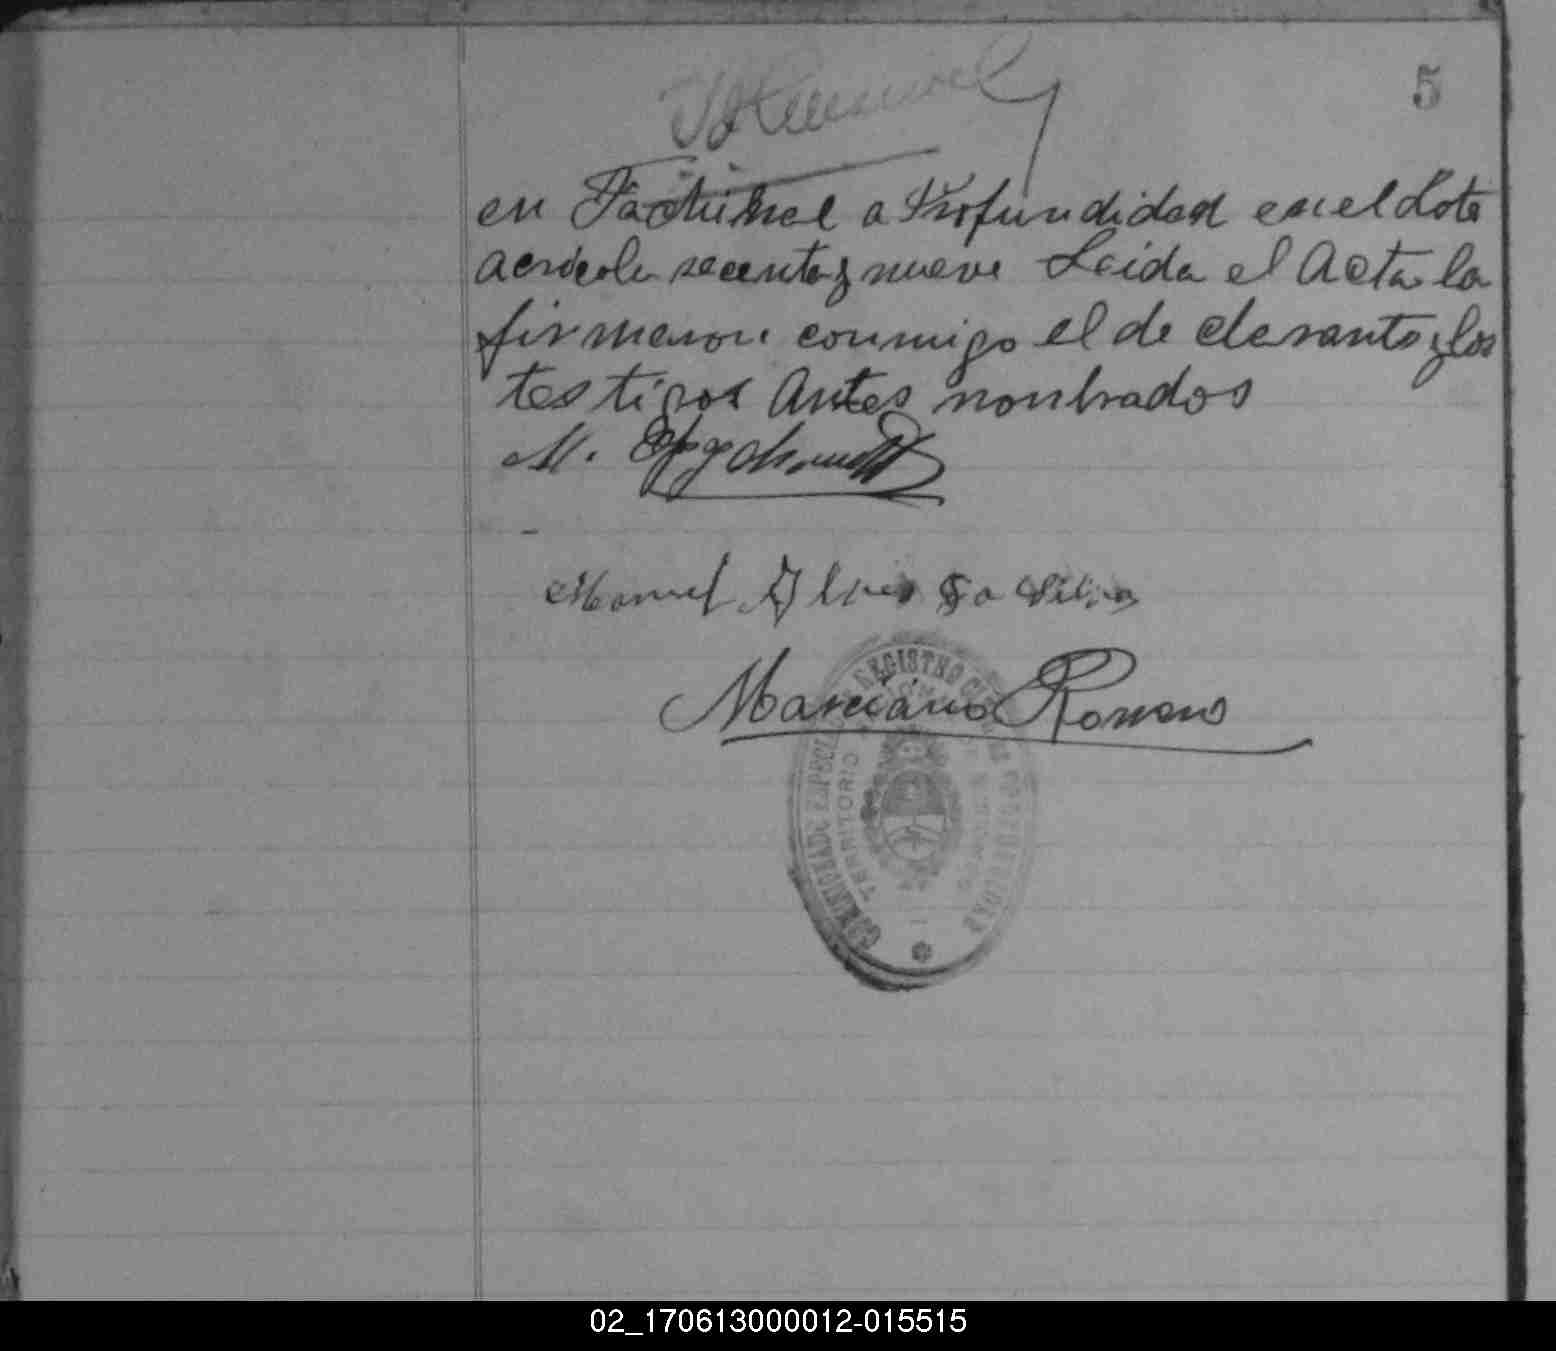 5
en a Profundidad en el Lote
acricole secenta y nueve Leida el Acta la
firmaron conmigo el de clarante y los
testigos Antes nonbrados
M.
Manuel Alves Da Silva
Marciano Romero
REGISTRO
TERRITORIO
02_170613000012-015515